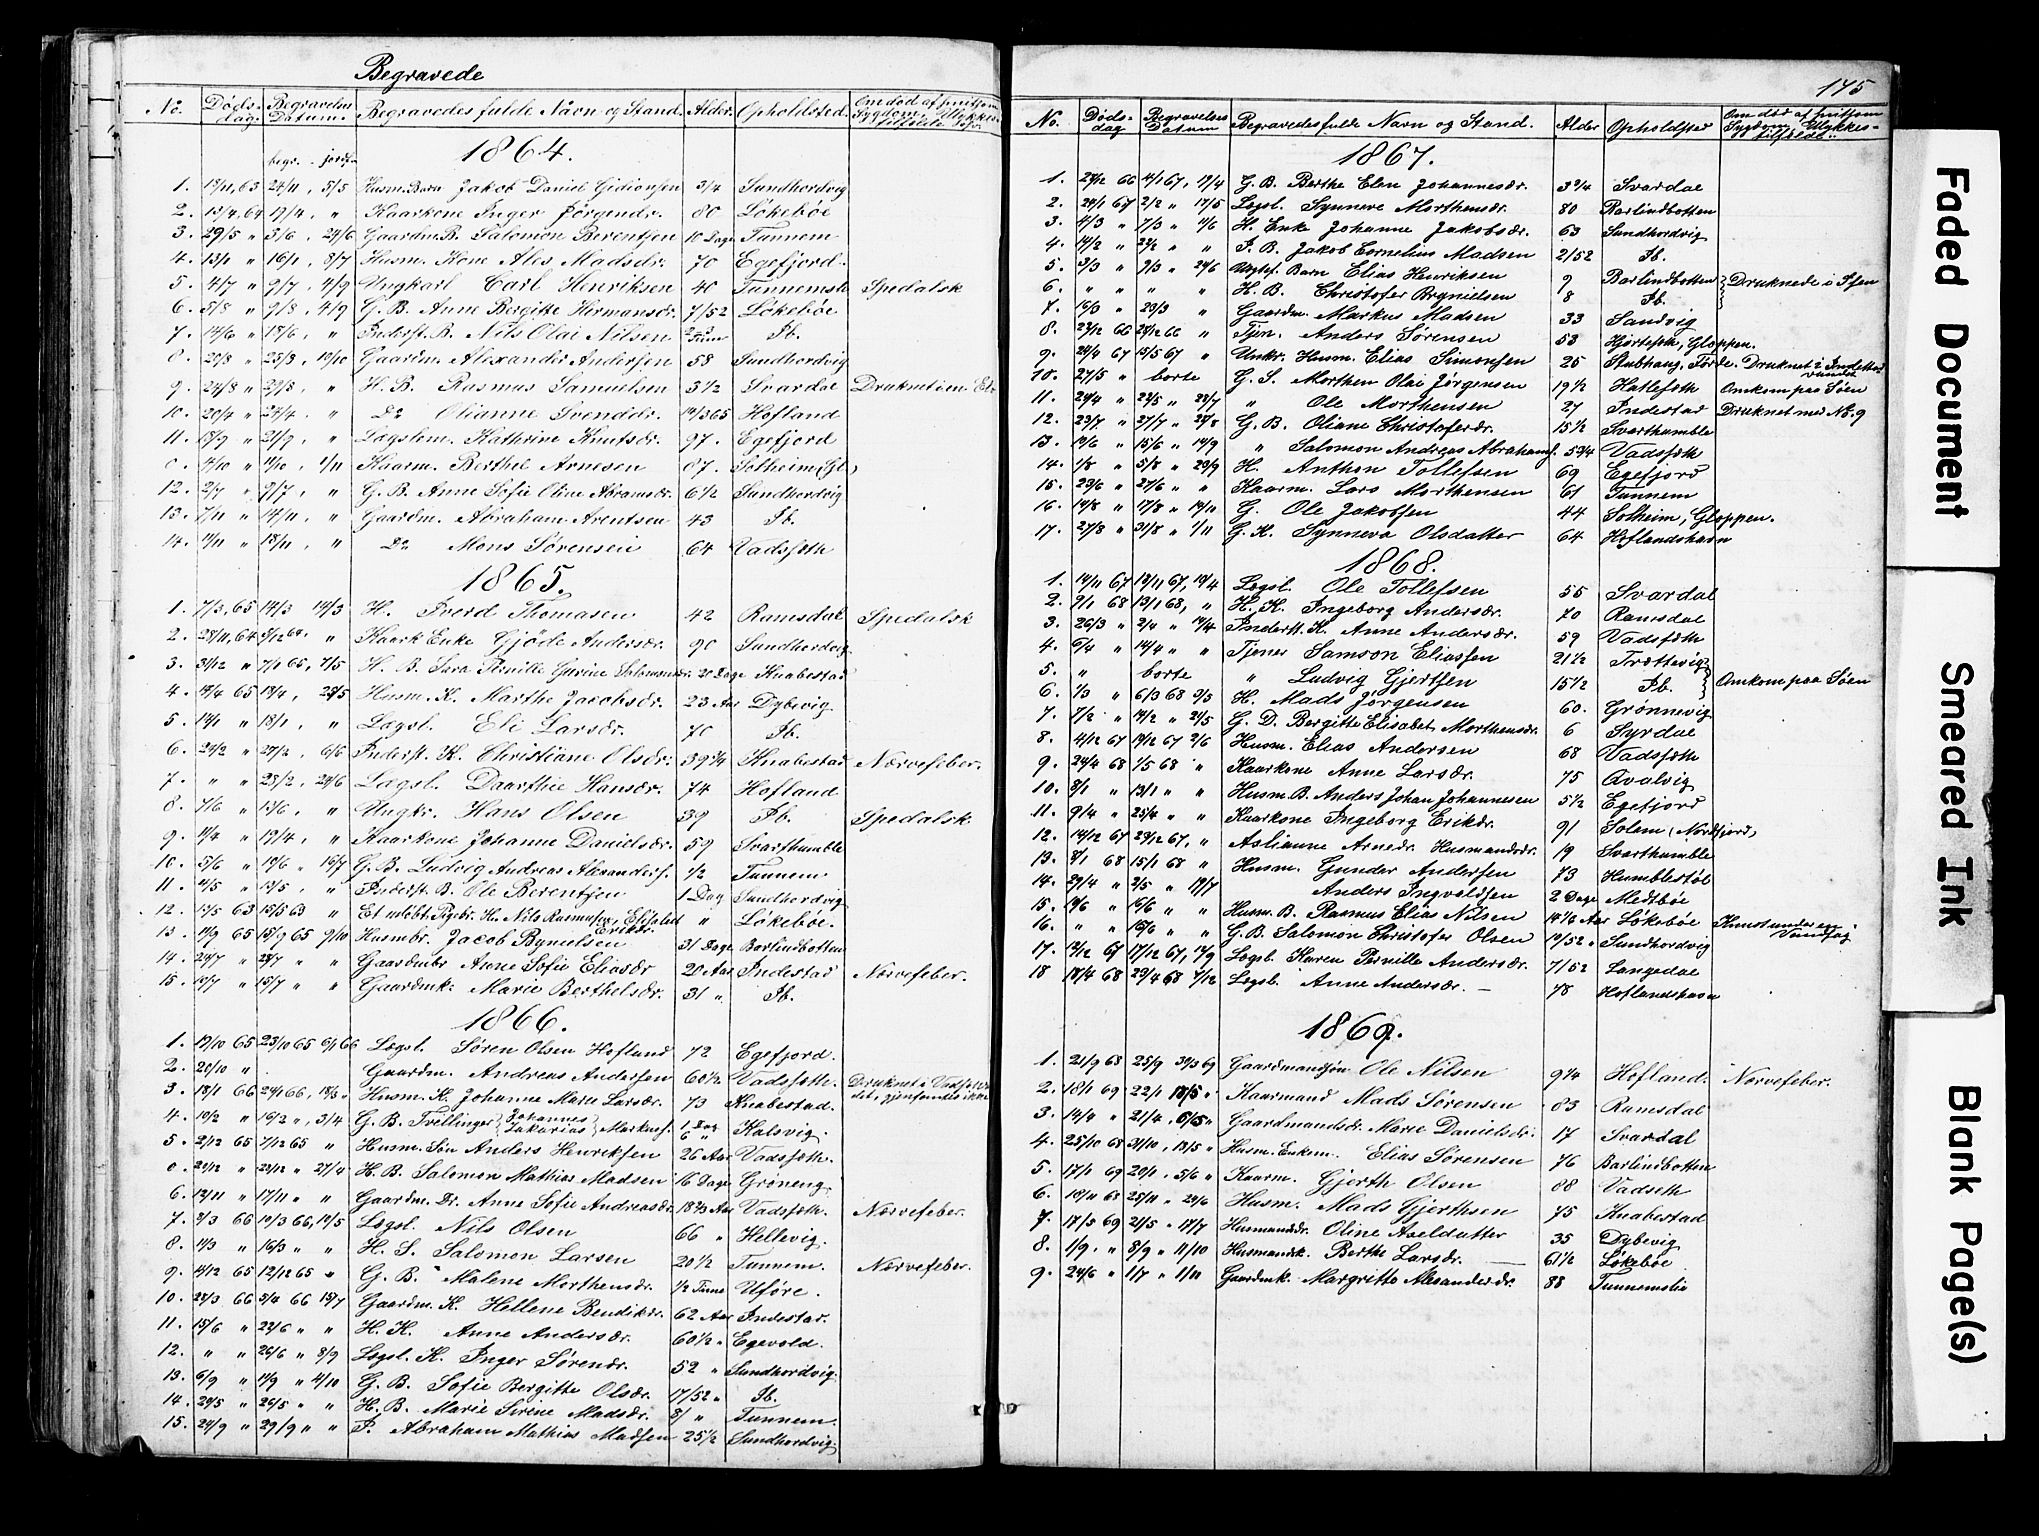 Begravede
No. Døds-dag. Begravelses Datum. Begravedes fulde Navn og Stand. Alder. Opholdsted. Om død af smitsom Sygdom, Ulykkes-tilfælde &c.
1864.
begr. jordf.
1. 24/11, 5/5 Husm. Barn Jakob Daniel Gidionsen 3/4 Sundhordvig
2. 13/4, 64 17/4, " Kaarkone Inger Jørgendr. 80 Løkebøe
3. 29/5 " 3/6, 24/6 Gaardm. B. Salomon Berentsen 10 Dage Tunnem
4. 13/1 " 16/1, 3/7 Husm. Kone Ales Madsdr. 70 Egefjord.
5. 4/7 " 9/7, 4/9 Ungkarl Carl Henriksen 40 Tunnemsli Spedalsk
6. 5/8 " 9/8, 4/9 G. B. Anne Bergitte Hermansdr. 7/52 Løkebøe
7. 14/6 " 18/6, " Inderst. B. Nils Olai Nilsen Ib.
8. 20/8 " 25/8, 10/10 Gaardm. Alexander Andersen 58 Sundhordvig
9. 24/8 " 29/8, " H. B. Rasmus Samuelsen 3 1/2 Svardal Druknet i en Elv
10. 20/4 " 24/4. " Do Olianne Svenddr. Hofland
11. 18/9 " 21/9, " Lægslem. Kathrine Knutsdr. 97. Egefjord
0. 7/10 " 11/10, 1/11 Kaarm. Berthel Arnesen 87. Solheim (Gl.)
12. 2/7 " 9/7, " G. B. Anne Sofie Oline Abramsdr. 6 1/2 Sundhordvig
13. 7/11 " 14/11, " Gaardm. Abraham Arentsen 43 Ib.
14. 11/11 " 18/11, " Do Mons Sørensen 64 Vadsæth
1865.
1. 7/3, 65 14/3 14/3 H. Iverd Thomasen 42 Ramsdal Spedalsk
2. 28/11, 64 " Kaark Enke Gjøde Andersdr. 90 Sundhordvig
3. 31/12 " 7/1 65, 7/5 H. B. Sara Pernille Gurine Salomonsdr. 20 Dage Knabestad
4. 10/4 65 13/4, 28/5 Husm. K. Marthe Jacobsdr. 23 Aar Dybevig
5. 14/1 " 18/1, " Lægsl. Eli Larsdr. 70 Ib.
6. 24/2 " 27/2, 6/6 Inderst. K. Christiane Olsdr. 39 3/4 Knabestad Nervefeber.
7. " " 28/2, 24/6 Lægsl. Daarthie Hansdr. 74 Hofland
8. 7/6 " 13/6, " Ungkr. Hans Olsen 39 Ib. Spedalsk.
9. 11/4 " 19/4, " Kaarkone Johanne Danielsdr. 59 Svarthumble
10. 5/6 " 10/6 " 16/7 G. B. Ludvig Andreas Alexanders. 1/2 Tunnem
11. 11/5 " 13/5, " Inderst. B. Ole Berentsen 1 Dag Sundhordvig
12. 11/5 63 15/5 63 " Et udøbt Pigebr. H. Nils Rasmusen, Efsfelad " Løkebøe.
13. 11/9 65 15/9 65 9/10 Husmbr. Jacob Bynielsen 31 Dage Barlindbotten
14. 24/7 " 28/7 " " Gaardmbr Anne Sofie Eliasdr 20 Aar Indestad Nervefeber.
15. 10/7 " 15/7 " " Gaardmk: Marie Berthelsdr. 31 " Ib.
1866.
1. 19/10 65 23/10 65 6/1 66 Lægsl. Søren Olsen Hofland 72 Egefjord.
2. 20/10 " Gaardm. Andreas Andersen 60 1/2 Vadsæth. Druknet i Vadset-vandet, gjenfandtes ikke
3. 18/1 66 24/1 66, 18/3 " Husm. K. Johanne Marie Larsdr. 73 Knabestad.
4. 10/2 " 16/2 ", 3/4 G. B. Tvillinger Johannes Zakarias Markuss. 1 Dag 6 " Kalsvig.
5. 2/12 65 7/12 65 " Husm. Søn Anders Henriksen 26 Aar Vadsæth.
0. 22/12 " 28/12 " 27/4 H. B. Salomon Mathias Madsen 16 Dage Grøneng
6. 13/11 " 17/11 " " Gaardm. Dr. Anne Sofie Andreasdr. 18 2/3 Aar Vadsæth. Nervefeber.
7. 3/3 66 10/3 66, 10/5 Lægsl. Nils Olsen 66 " Hellevig.
8. 11/3 " 16/3 " " H. S. Salomon Larsen 20 1/2 Tunnem. Nervefeber.
9. 4/12 65 12/12 65 " G. B. Malene Morthensdr. 1/2 Time Uføre.
10. 28/3 66 3/4 66 15/7 Gaardm. K. Hellene Bendiksdr. 62 Aar Indestad.
11. 15/6 " 22/6 " " H. K. Anne Andersdr. 60 1/2 " Egevold.
12. " " 26/6 " 3/9 Lægsl. K. Inger Sørensdr. 52 " Sundhordvig.
13. 6/9 " 11/9 " 4/10 G. B. Sofie Bergitte Olsdr. 17/52 " Ib.
14. 20/5 " 26/5 " " H. B. Marie Sirine Madsdr. Tunnem.
15. 24/9 " 29/9 " " I. Abraham Mathias Madsen 25 1/2 Sundhordvig
175
No. Døds-dag Begravelses Datum Begravedes fulde Navn og Stand. Alder Opholdsted Om død af smitsom Sygdom, Ulykkes-tilfælde
1867.
1. 29/12 66 4/1 67, 19/4 G. B. Berthe Elen Johannesdr. 3 3/4 Svardal
2. 29/1 67 2/2 " 17/5 Lægsl. Synneve Morthensdr. 80 Barlindbotten
3. 4/3 " 7/3 " 11/6 H. Enke Johanne Jakobsdr. 63 Sundhordvig
4. 14/2 " 22/2 " " I. B. Jakob Cornelius Madsen 2/52 Ib.
5. 3/3 " 9/3 " 24/6 Barn Elias Henriksen 9 Barlindbotten Druknede i Isen
6. " " " " H. B. Christofer Brynielsen 8 Ib.
7. 16/3 " 23/3 " Gaardm. Markus Madsen 33 Sandvig
8. 23/12 66 29/12 66 " Tjen. Anders Sørensen 53 Hjortseth, Gloppen.
9. 29/4 67 15/5 67 " Unkr. Husm. Elias Simonsen 25 Stubhaug, Førde. Druknet i Indestad-vandet
10. 27/5 " borte G. S. Morthen Olai Jørgensen 19 1/2 Hatleseth Omkom paa Søen
11. 29/4 " 22/5 " 28/7 " Ole Morthensen 27 Indestad Druknet med No. 9
12. 23/7 " 27/7 " 28/8 G. B. Oliane Christoferdr. 15 1/2 Svarthumble
13. 10/6 " 15/6 " 14/9 " Salomon Andreas Abrahams. 5 3/4 Vadsæth
14. 1/8 " 5/8 " 29/9 H. Anthon Tollefsen 69 Egefjord
15. 23/6 " 27/6 " " Kaarm. Lars Morthensen 61 Tunnem
16. 14/8 " 17/8 " 14/10 G. Ole Jakobsen 44 Solheim, Gloppen.
17. 27/8 " 31/8 " 1/11 G. K. Synneva Olsdatter 64 Hoflandshavn
1868.
1. 14/11 67 18/11 67, 14/4 Lægsl. Ole Tollefsen 55 Svardal
2. 9/1 68 13/1 68, " H. K. Ingeborg Andersdr. 70 Ramsdal
3. 26/3 " 2/4 " 14/4 Inderst. K. Anne Andersdr. 59 Vadsæth
4. 6/4 " 14/4 " " Tjener Samson Eliassen 21 1/2 Trættevig
5. " borte " Ludvig Gjertsen 15 1/2 Ib. Omkom paa Søen
6. 1/3 " 6/3 68 9/5 H. Mads Jørgensen 60. Grønnevig
7. 7/2 " 14/2 " 21/5 G. D. Bergitte Elisabet Morthensdr. 6 Syrdal
8. 4/12 67 14/12 67 2/6 Husm. Elias Andersen 68 Vadsæth
9. 24/4 68 1/5 68 " Kaarkone Anne Larsdr. 75 Qvalvig
10. 8/1 " 13/1 " " Husm. B. Anders Johan Johannesen 5 1/2 Egefjord
11. 9/4 " 25/4 " " Kaarkone Ingeborg Eriksdr. 91 Solem (Nordfjord)
12. 14/12 67 29/12 67, " Aslianne Arnedr. Husmandsdr. 19 Svarthumble
13. 8/1 68 15/1 68 " Husm. Gunder Andersen 73 Humblestøl
14. 29/4 " 2/5 " 19/7 Anders Ingvaldsen 2 Dage Medtbøe
15. 10/6 " 16/6 " " Husm. B. Rasmus Elias Nilsen Aar Løkebøe Knust under en
16. " " 15/6 " " G. B. Salomon Christofer Olsen 10/52 " Sundhordvig
17. 12/12 67 17/12 67, 17/9 Lægsl. Karen Pernille Andersdr. 7/52 Langedal
18 18/4 68 23/4 68 7/12 Lægsl. Anne Andersdr. — 78 Hoflandshavn
1869.
1. 21/9 68 25/9 30/3 69 Gaardmandssøn Ole Nilsen 9 1/4 Hofland. Nervefeber.
2. 18/1 69 22/1 18/5 " Kaarmand Mads Sørensen 83 Ramsdal
3. 14/4 " 21/4, 6/5 " Gaardmandsdr. Marie Danielsdr. 17 Svardal
4. 25/10 68 31/10, 13/5 " Husm. Enkem. Elias Sørensen 76 Barlindbotten
5. 17/1 69 20/1, 5/6 " Kaarm. Gjerth Olsen 88 Vadseth
6. 18/11 68 25/11 " 20/6 Husm. Mads Gjerthsen 75 Knabestad
7. 17/5 69 21/5 " 17/7 Husmandsdr. Oline Axeldatter 35 Dybevig
8. 1/9, " 8/9 " 11/10 Husmandsk. Berthe Larsdr. — 61 1/2 Løkebøe
9. 24/6 " 1/7 " 1/11 Gaardmk. Margritte Alexanderdr. 88 Tunnemslia
Faded Document
Smeared Ink
Blank Page(s)